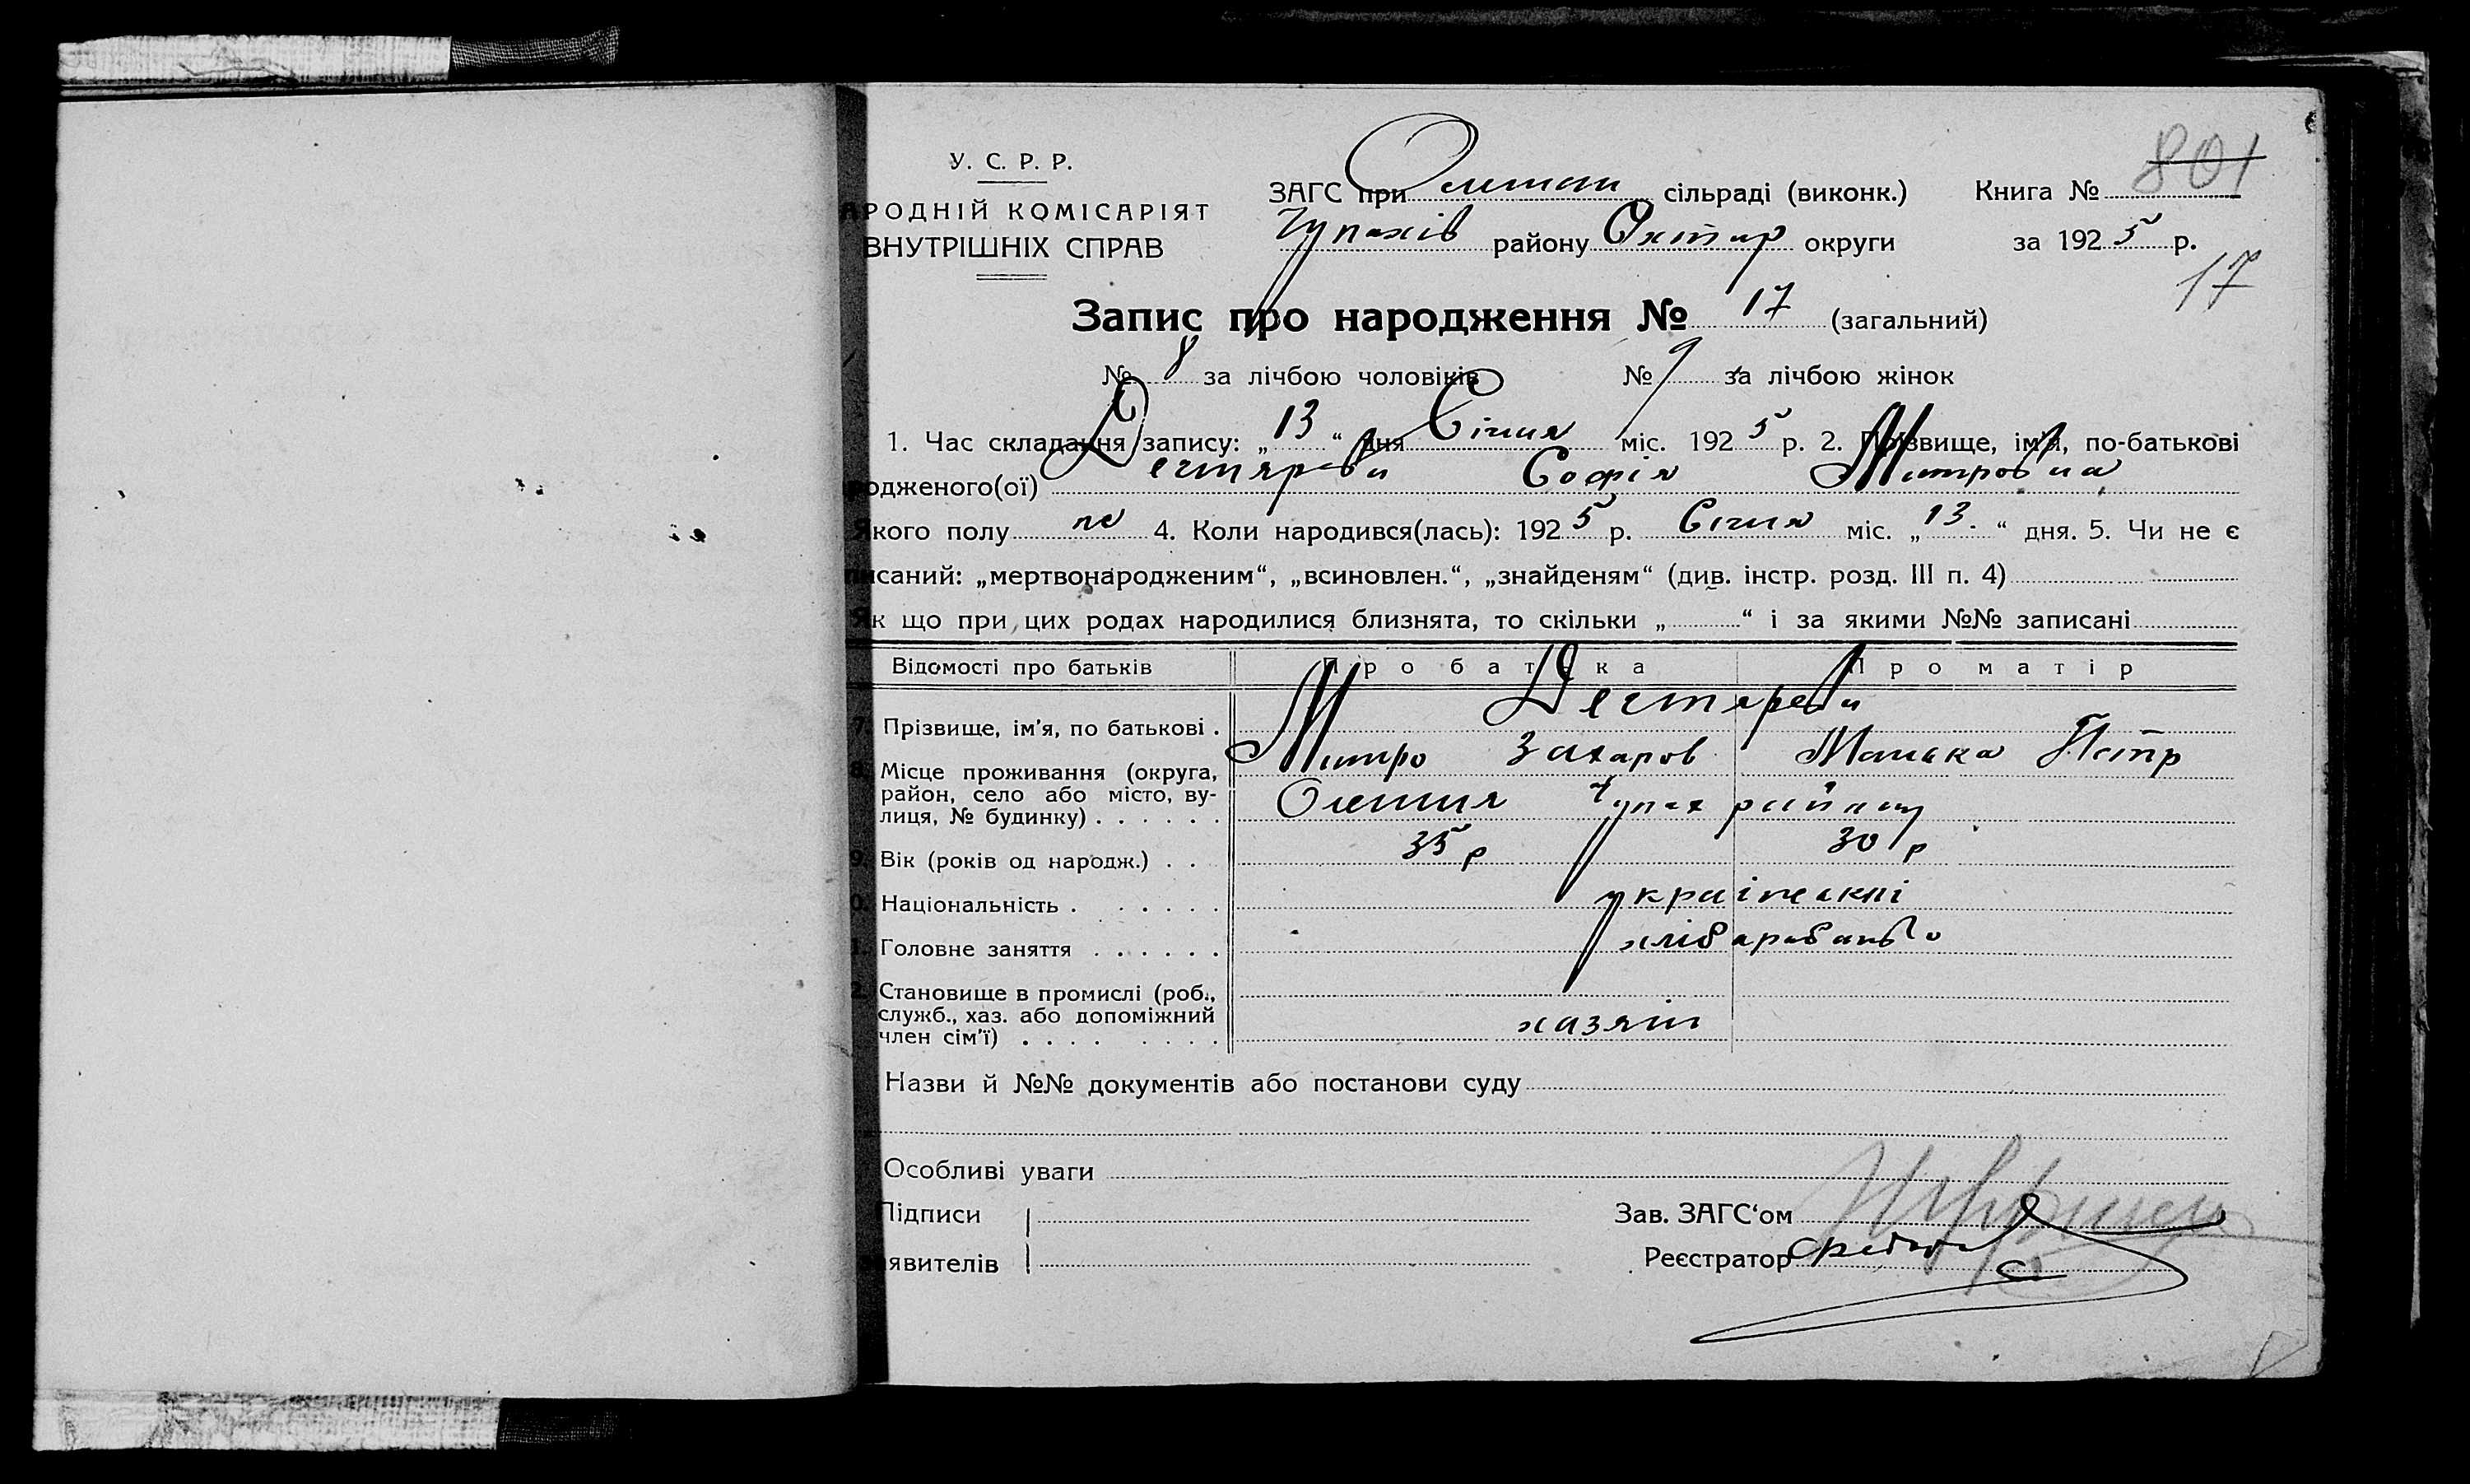 У. С. Р. Р.
АРОДНІЙ КОМІСАРІЯТ
ВНУТРІШНІХ СПРАВ
ЗАГС при Олешан сільраді (виконк.) Книга № 801
Чупахів району Охтир округи за 1925 р.
17
Запис про народження № 17 (загальний)
№ 8 за лічбою чоловіків № 9 за лічбою жінок
1. Час складання запису: „13“ дня Січня міс. 1925 р. 2. Прізвище, ім'я, по-батькові
одженого(ої) Дегтярева Софія Митровна
Якого полу 4. Коли народився(лась): 1925 р. Січня міс. „13.“ дня. 5. Чи не є
писаний: „мертвонародженим“, „всиновлен.“, „знайденям“ (див. інстр. розд. III п. 4)
Як що при цих родах народилися близнята, то скільки „ “ і за якими №№ записані
Відомості про батьків Про батька Про матір
7. Прізвище, ім'я, по батькові . Дегтяреви
Митро Захаров Манька Петр
8. Місце проживання (округа, район, село або місто, вулиця, № будинку) . . . . . . Олешня Чупах району
9. Вік (років од народж.) . . 35 р 30 р
0. Національність . . . . . . українські
1. Головне заняття . . . . . . хлібарабство
2. Становище в промислі (роб., служб., хаз. або допоміжний член сім'ї) . . . . . . . . хазяін
Назви й №№ документів або постанови суду
Особливі уваги
Підписи Зав. ЗАГС‘ом
явителів Реєстратор